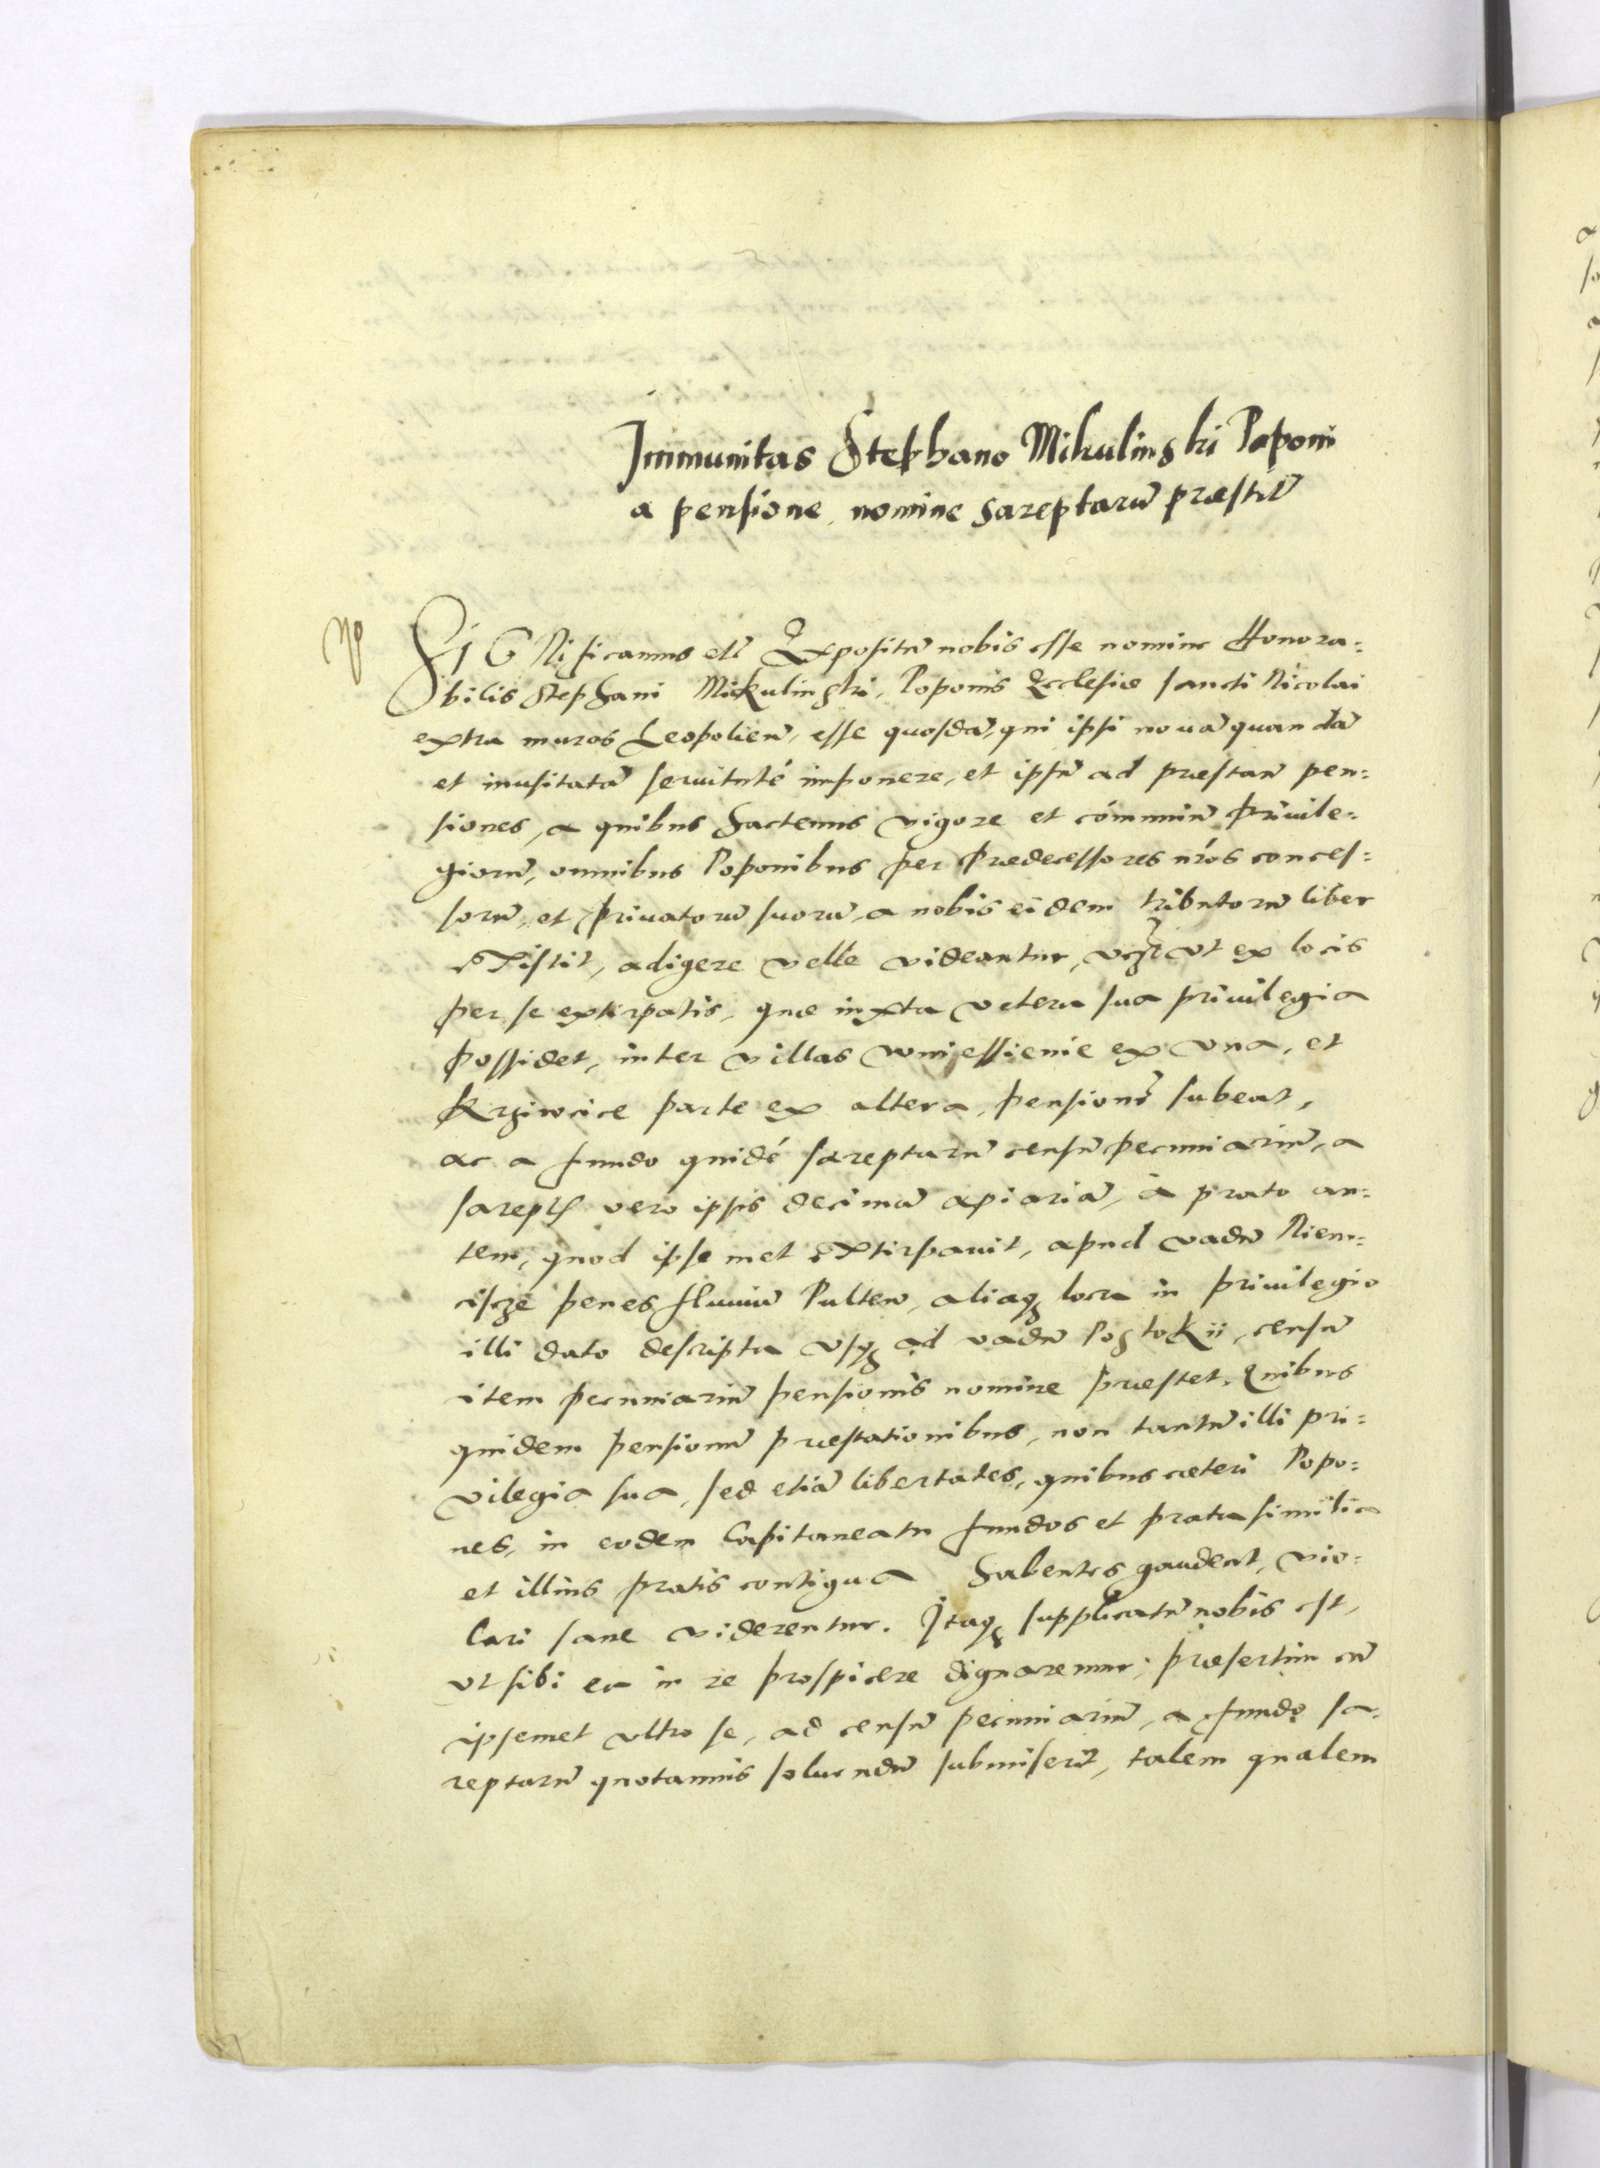 Immunitas Stephano Mikulinski Poponi
a pensione nomine sareptarũ præstitũ
SIGNificamus etc̃ Expositũ nobis esse nomine Honora=
bilis Stephani Mikulinski, Poponis Ecclesiæ sancti Nicolai
extra muros Leopolien̄, esse quosdã, qui ipsi nouã quandã
et inusitatã seruituté imponere, et ipsũ ad præstan̄ pen=
siones, a quibus hactenus vigore et cómuniũ Priuile=
giorũ, omnibus Poponibus per Prædecessores nr̃os conces=
sorũ, et priuatorũ suorũ, a nobis eidem tributorũ liber
extitit, adigere velle videantur, vt ex locis
per se extirpatis, quæ iuxta vetera sua priuilegia
possidet, inter villas wniessienie ex vna, et
Krziwcice parte ex altera, pensionē subeat,
ac a fundo quidé sareptarũ censũ pecuniariũ, a
sarept vero ipsis decimã apiariã, à prato au=
tem, quod ipsemet extirpauit, apud vadũ Niem=
cische penes fluuiũ Pultew, aliaq̃ loca in priuilegio
illi dato descripta vsq̃ ad vadũ Postokii, censũ
item pecuniariũ pensionis nomine præstet. Quibus
quidem pensionũ præstationibus, non tantũ illi pri=
vilegia sua, sed etiã libertates, quibus cæteri Popo=
nes, in eodem Capitaneatu fundos et prata similia
et illius pratis contigua habentes gaudent, vio=
lari sane viderentur. Itaq̃ supplicatũ nobis est,
vt sibi ea in re prospicere dignaremur, præsertim cũ
ipsemet vltro se, ad censũ pecuniariũ, a fundo sa=
reptarũ quotannis soluendũ submiserit, talem qualem